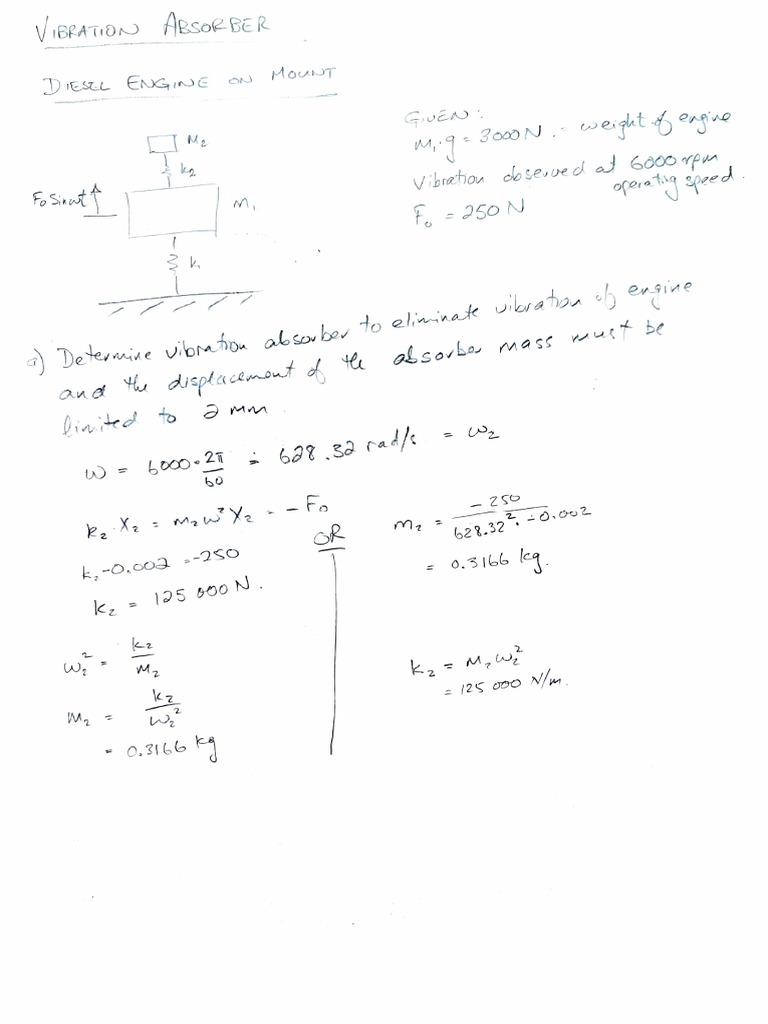 VIBRATION ABSORBER
DIESEL ENGINE ON MOUNT
M₂
k₂
F₀ Sinωt
M₁
k₁
GIVEN:
m₁·g = 3000 N. = weight of engine
Vibration observed at 6000 rpm
operating speed.
F₀ = 250 N
a) Determine vibration absorber to eliminate vibration of engine
and the displacement of the absorber mass must be
limited to 2 mm.
ω = 6000 · 2π/60 = 628.32 rad/s = ω₂
k₂·X₂ = m₂ω²X₂ = -F₀
k₂·-0.002 = -250
k₂ = 125 000 N.
ω₂² = k₂/M₂
M₂ = k₂/ω₂²
= 0.3166 kg
OR
m₂ = -250/628.32²·-0.002
= 0.3166 kg.
k₂ = M₂ω₂²
= 125 000 N/m.